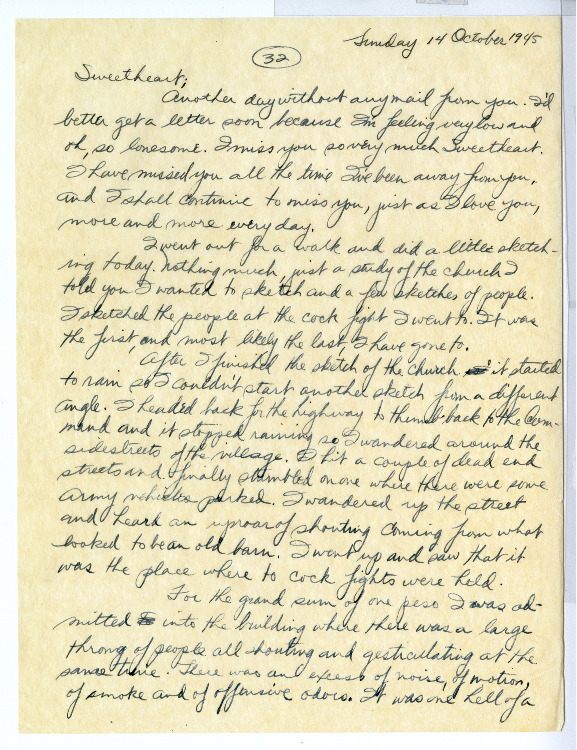 Sunday 14 October 1945
32
Sweetheart;
Another day without any mail from you. I'd
better get a letter soon because I'm feeling very low and
oh, so lonesome. I miss you so very much Sweetheart.
I have missed you all the time I've been away from you,
and I shall continue to miss you, just as I love you,
more and more every day.
I went out for a walk and did a little sketch-
ing today. Nothing much, just a study of the church I
told you I wanted to sketch and a few sketches of people.
I sketched the people at the cock fight I went to. It was
the first, and most likely the last, I have gone to.
After I finished the sketch of the church it started
to rain so I couldn't start another sketch from a different
angle. I headed back for the highway to thumb back to the Com-
mand and it stopped raining so I wandered around the
sidestreets of the village. I hit a couple of dead end
streets and finally stumbled on one where there were some
Army vehicles parked. I wandered up the street
and heard an uproar of shouting coming from what
looked to be an old barn. I went up and saw that it
was the place where to cock fights were held.
For the grand sum of one peso I was ad-
mitted into the building where there was a large
throng of people all shouting and gesticulating at the
same time. There was an excess of noise, of motion,
of smoke and of offensive odors. It was one hell of a